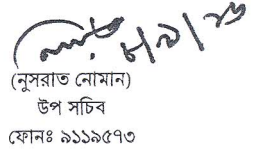 ৮/৯/১৬
(নুসরাত নোমান)
উপ সচিব
ফোনঃ ৯১১৯৫৭৩